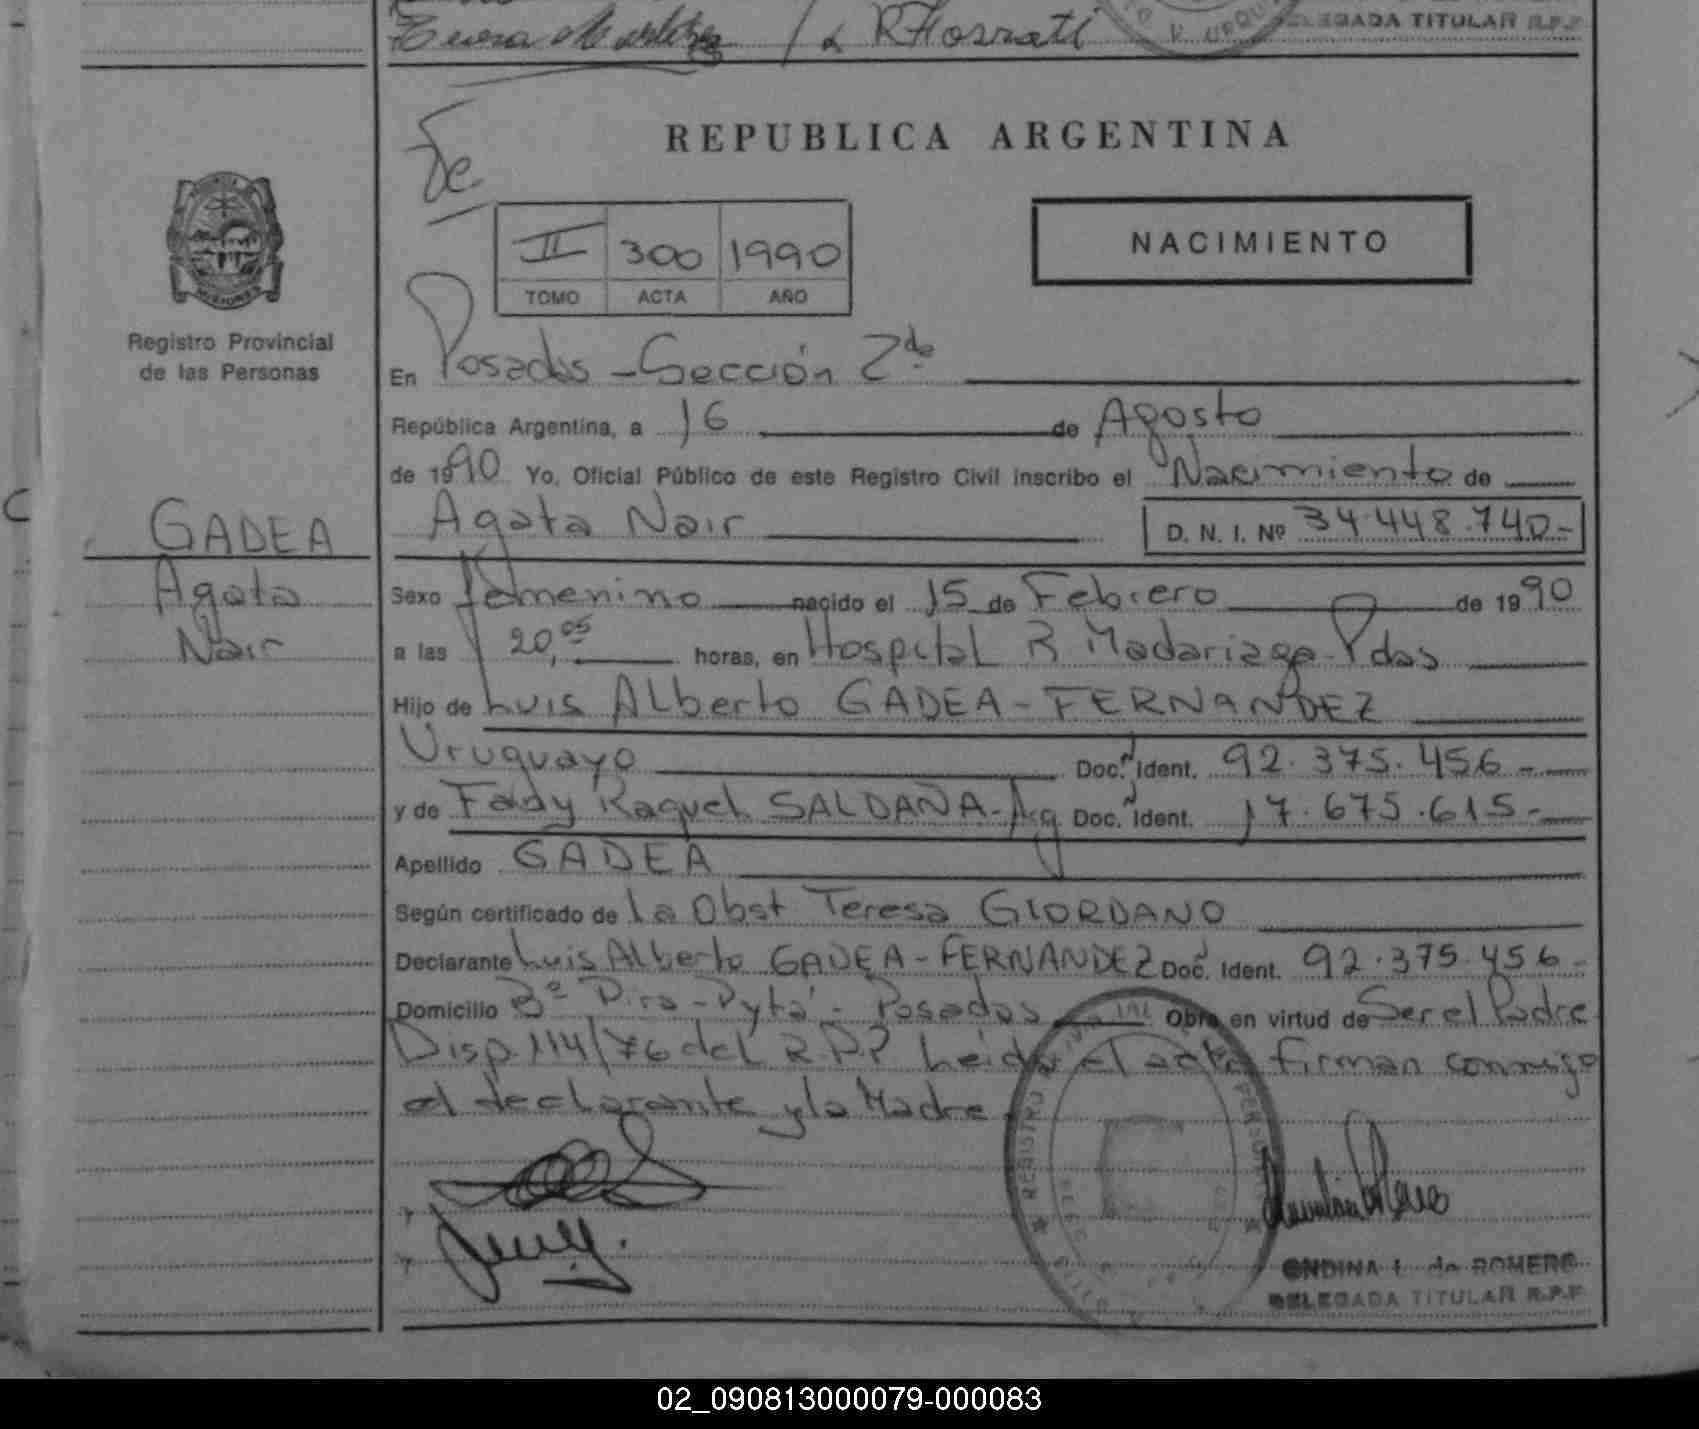 / L R Horrati
DELEGADA TITULAR R.P.P
REPUBLICA ARGENTINA
II 300 1990
TOMO ACTA AÑO
NACIMIENTO
MISIONES
Registro Provincial
de las Personas
En Posadas - Sección 2da
República Argentina, a 16 de Agosto
de 1990 Yo, Oficial Público de este Registro Civil inscribo el Nacimiento de
GADEA
Agata
Nair
Agata Nair D. N. I. Nº 34.448.740-
Sexo femenino nacido el 15 de Febrero de 1990
a las 20,05 horas, en Hospital R Madariaga-Pdas
Hijo de Luis Alberto GADEA-FERNANDEZ
Uruguayo Doc. Ident. 92.375.456-
y de Fady Raquel SALDAÑA-Arg Doc. Ident. 17.675.615-
Apellido GADEA
Según certificado de la Obst Teresa GIORDANO
Declarante Luis Alberto GADEA-FERNANDEZ Doc. Ident. 92.375.456-
Domicilio Bº Pira-Pytá - Posadas Obra en virtud de Ser el Padre
Disp. 114/76 del R.P.P Leida el acta firman conmigo
el declarante y la Madre
REGISTRO
ONDINA L. de ROMERO
DELEGADA TITULAR R.P.P
02_090813000079-000083